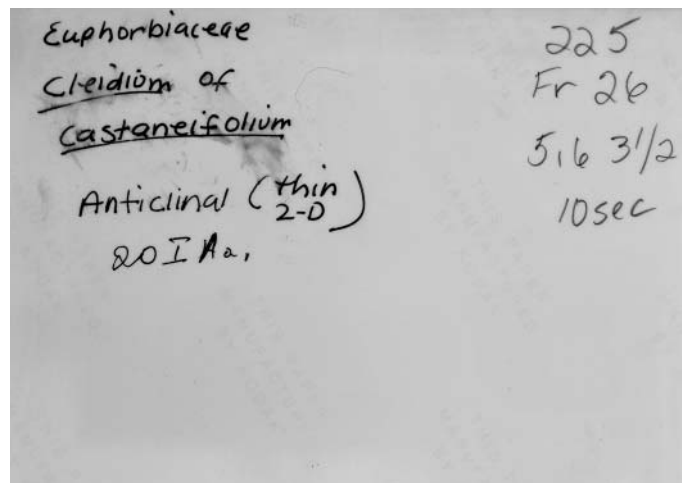 Euphorbiaceae
Cleidium of
Castaneifolium
Anticlinal (thin
2-D)
20 I Aa,
225
Fr 26
5,6 3 1/2
10 sec